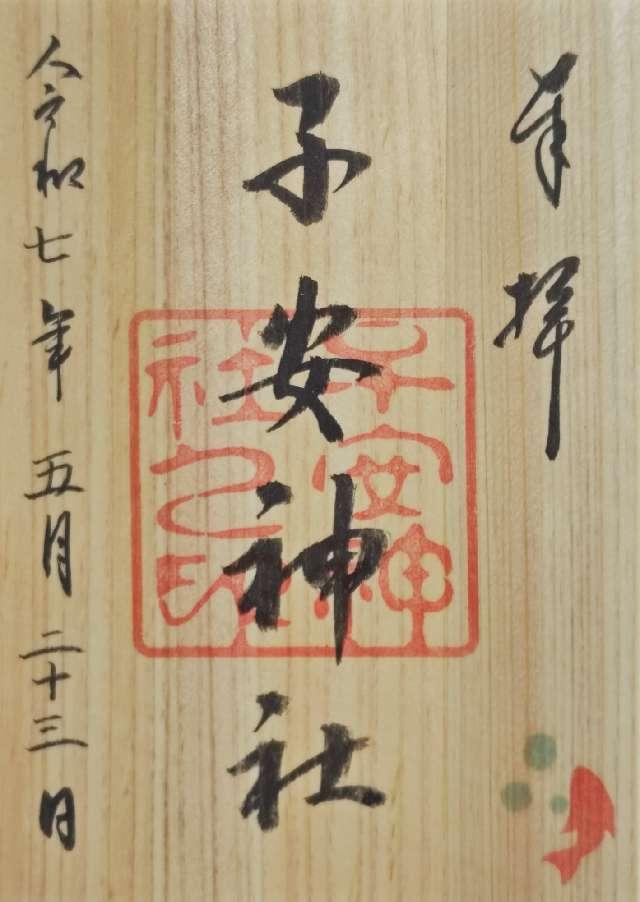 奉拝
子安神社
子安神社之印
令和七年五月二十三日